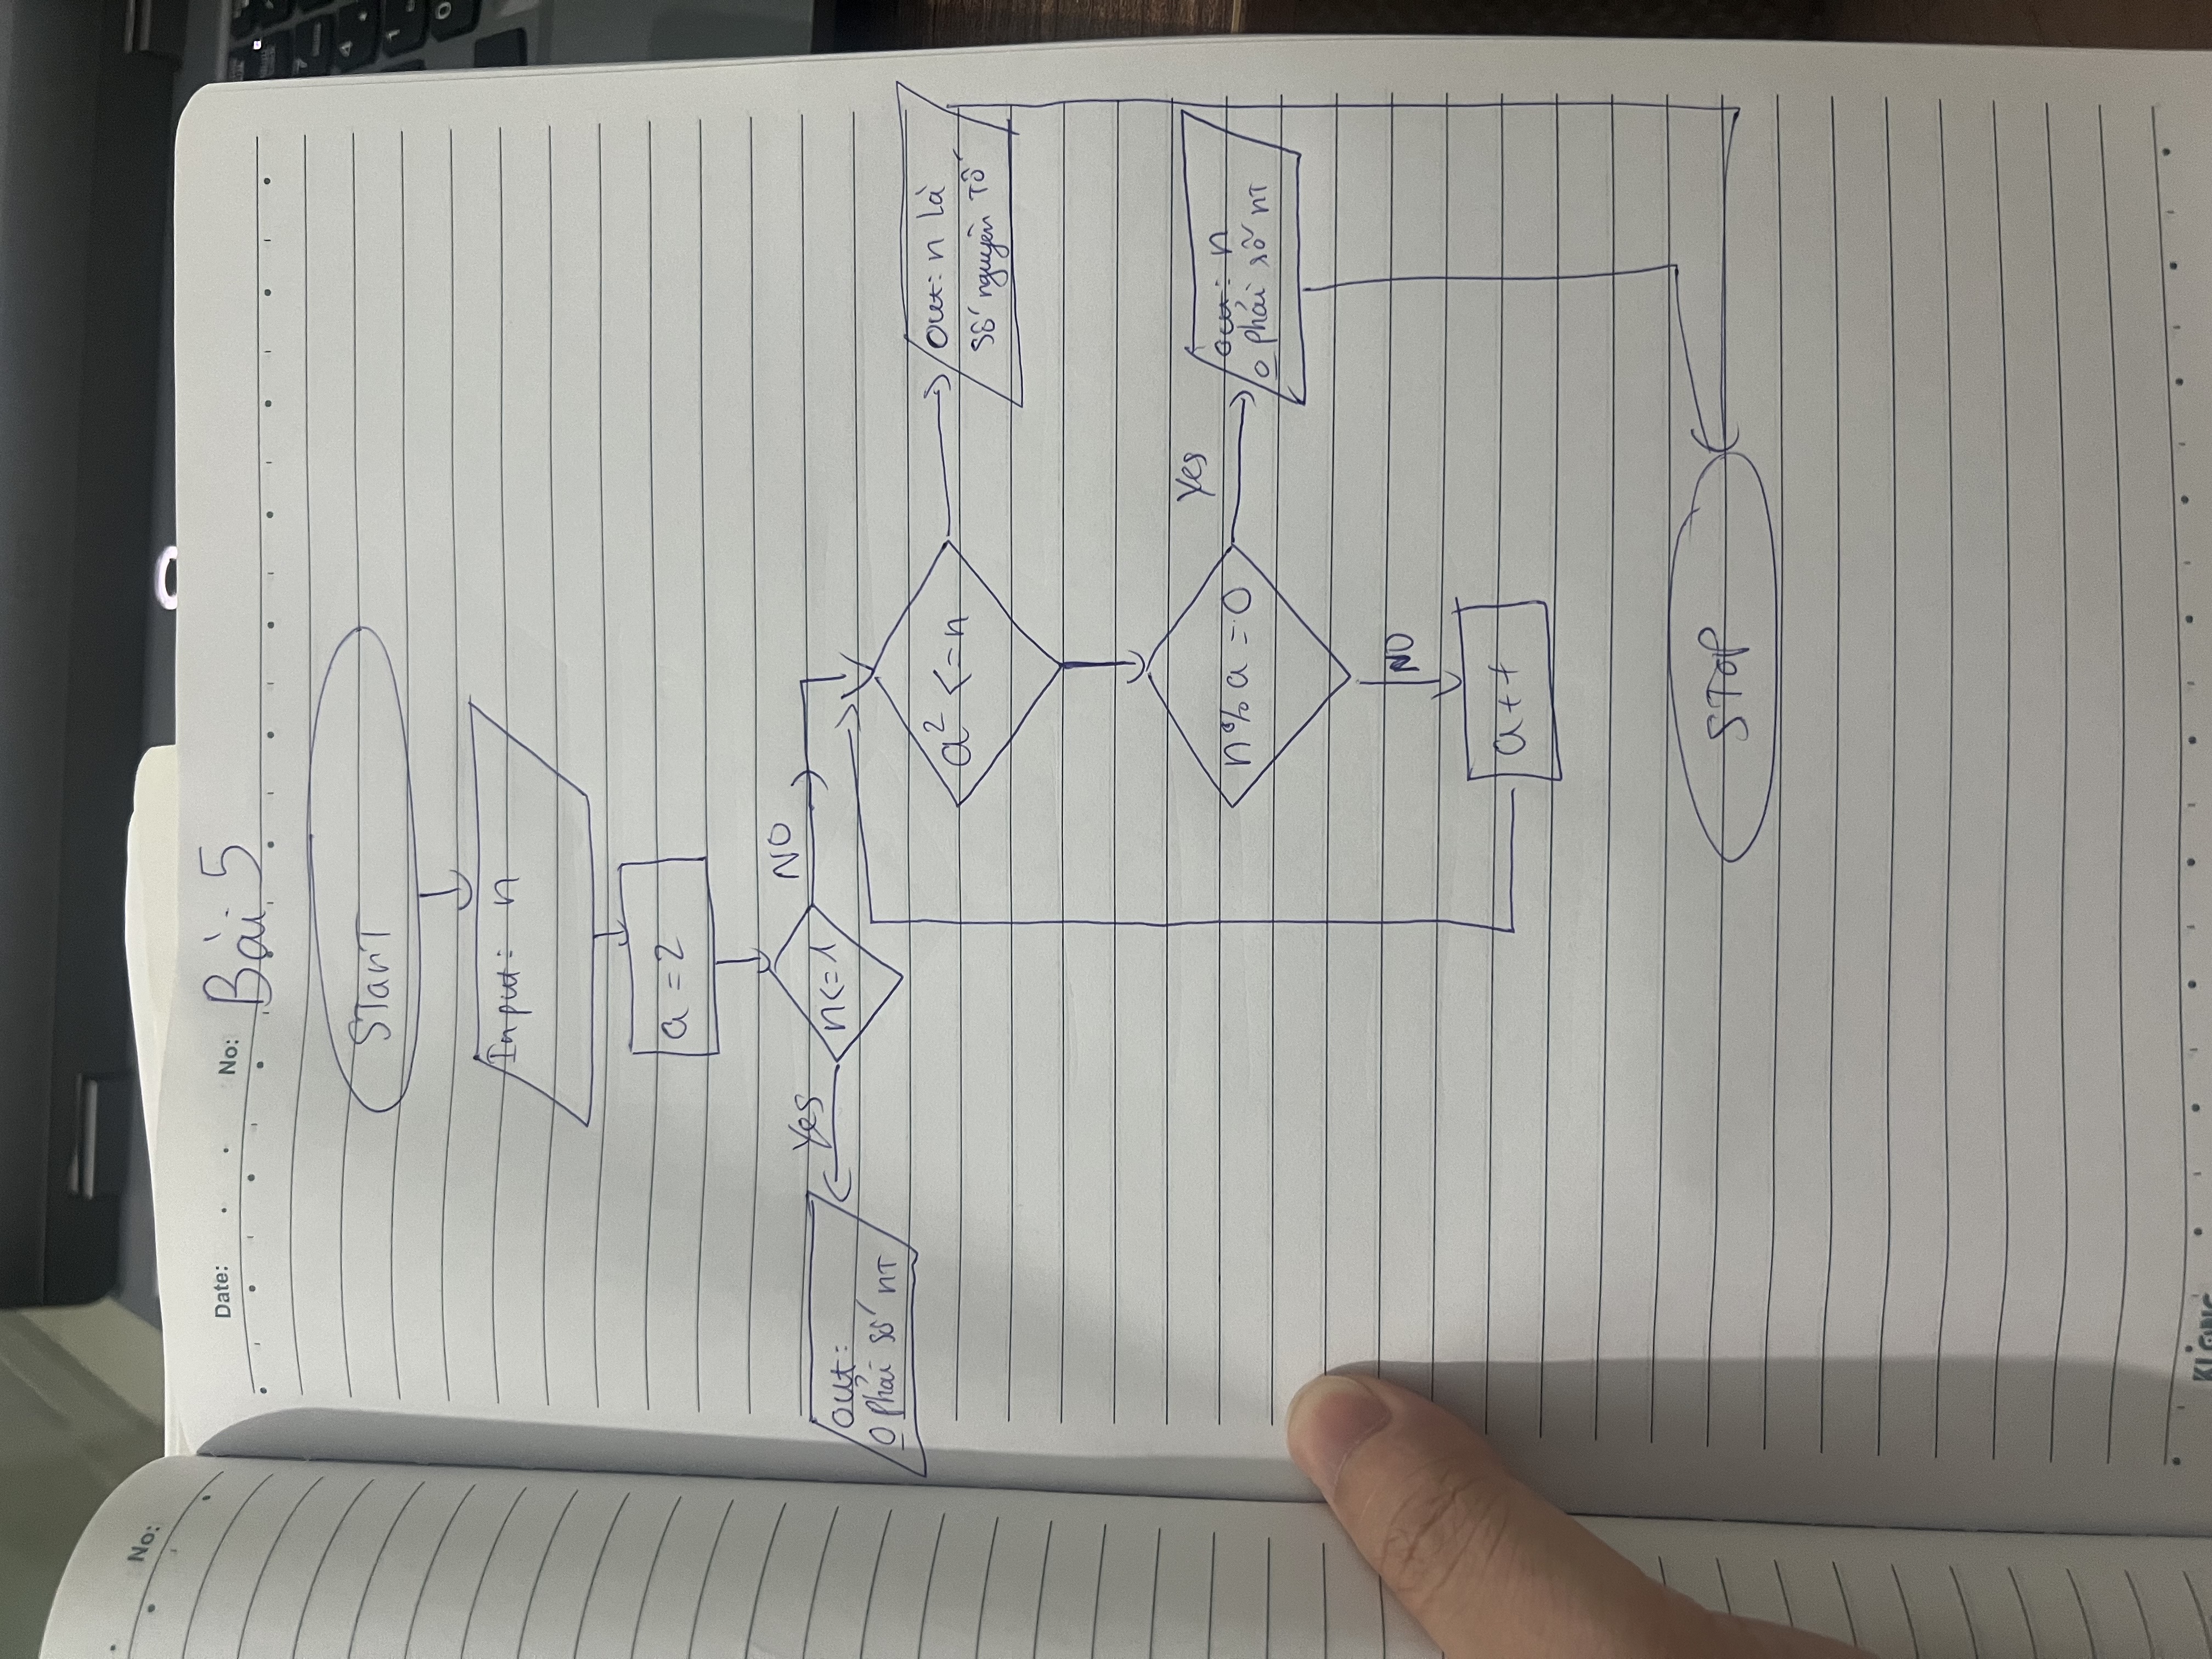 No:
Date: No: Bài 5
START
Input: n
a = 2
n<=1
Yes
NO
out:
o phải số nT
a² <= n
out: n là
số nguyên Tố
n % a = 0
Yes
out: n
o phải số nT
NO
a++
STOP